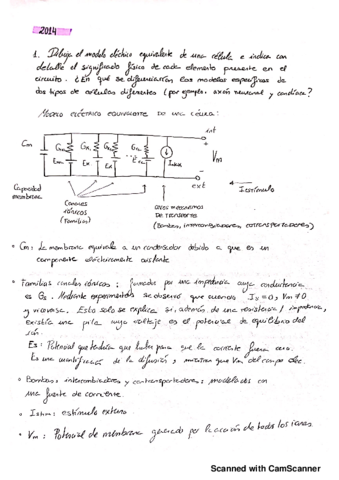 2014
1. Dibuja el modelo eléctrico equivalente de una célula e indica con
detalle el significado físico de cada elemento presente en el
circuito. ¿En qué se diferencian los modelos específicos de
dos tipos de células diferentes (por ejemplo, axón neuronal y cardiaca?
MODELO ELÉCTRICO EQUIVALENTE DE UNA CÉLULA:
int
Cm
Vm
ext
Capacidad
membrana
Canales
iónicos
(Familias)
Otros mecanismos
DE TRANSPORTE
(Bombas, intercambiadores, cotransportadores)
Iestímulo
• Cm: La membrana equivale a un condensador debido a que es un
componente eléctricamente aislante
• Familias canales iónicos: formada por una impedancia cuya conductancia
es Gs. Mediante experimentos se observó que cuando Is = 0, Vm ≠ 0
y viceversa. Esto solo se explica si, además de una resistencia / impedancia,
existiera una pila cuyo voltaje es el potencial de equilibrio del
ión.
Es: Potencial que tendría que haber para que la corriente fuera cero.
Es una cuantificación de la difusión, mientras que Vm del campo elec.
• Bombas, intercambiadores y cotransportadores: modelados con
una fuente de corriente.
• Istim: estímulo externo
• Vm: Potencial de membrana generado por la acción de todos los iones.
Scanned with CamScanner